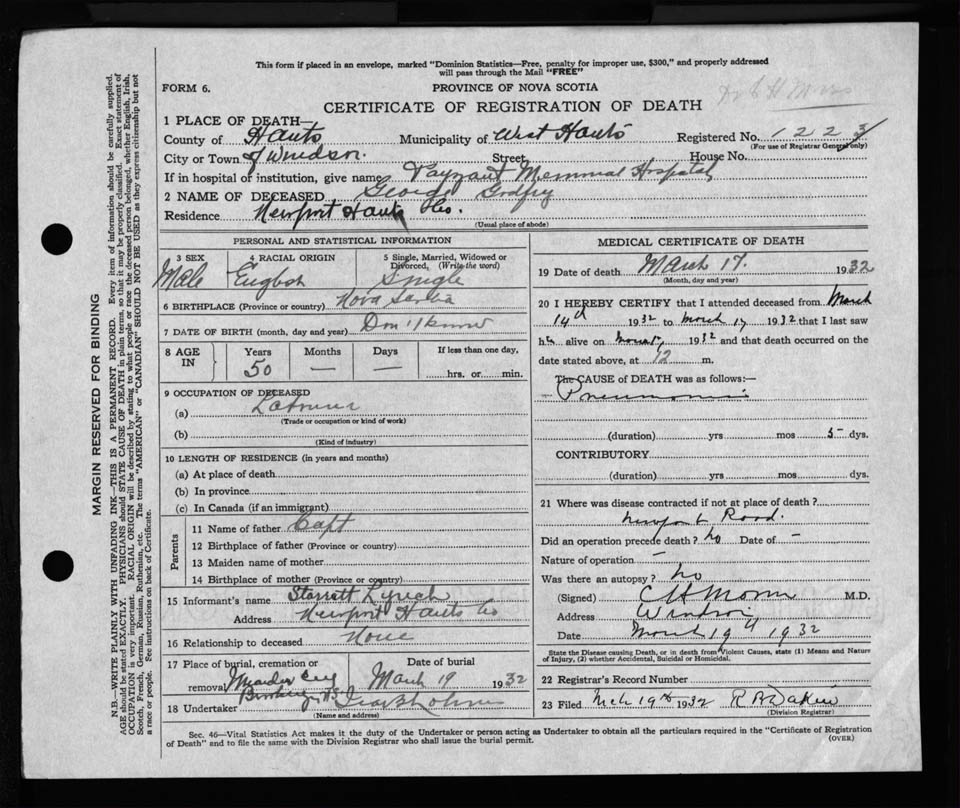 This form if placed in an envelope, marked "Dominion Statistics—Free, penalty for improper use, $300," and properly addressed
will pass through the Mail "FREE"
FORM 6.
PROVINCE OF NOVA SCOTIA
CERTIFICATE OF REGISTRATION OF DEATH
1 PLACE OF DEATH—
County of Hants Municipality of West Hants Registered No. 1223
(For use of Registrar General only)
City or Town of Windsor. Street, House No.
If in hospital of institution, give name Payzant Memorial Hospital
2 NAME OF DECEASED George Godfry
Residence Newport Hants Co.
(Usual place of abode)
PERSONAL AND STATISTICAL INFORMATION
3 SEX 4 RACIAL ORIGIN 5 Single, Married, Widowed or
Divorced, (Write the word)
Male English Single
6 BIRTHPLACE (Province or country) Nova Scotia
7 DATE OF BIRTH (month, day and year) Don't know
8 AGE IN Years Months Days If less than one day,
50 — — hrs. or min.
9 OCCUPATION OF DECEASED
(a) Labourer
(Trade or occupation or kind of work)
(b)
(Kind of industry)
10 LENGTH OF RESIDENCE (in years and months)
(a) At place of death
(b) In province
(c) In Canada (if an immigrant)
Parents
11 Name of father Capt
12 Birthplace of father (Province or country)
13 Maiden name of mother
14 Birthplace of mother (Province or country)
15 Informant's name Starrett Lynch
Address Newport Hants Co
16 Relationship to deceased None
17 Place of burial, cremation or Date of burial
removal March 19 1932
18 Undertaker
(Name and address)
MEDICAL CERTIFICATE OF DEATH
19 Date of death March 17. 1932
(Month, day and year)
20 I HEREBY CERTIFY that I attended deceased from March
14th 1932 to March 17 1932 that I last saw
h alive on 1932 and that death occurred on the
date stated above, at 12 m.
The CAUSE of DEATH was as follows:—
Pneumonia
(duration) yrs mos 5 dys.
CONTRIBUTORY
(duration) yrs. mos. dys.
21 Where was disease contracted if not at place of death?
Newport Road.
Did an operation precede death? no Date of —
Nature of operation —
Was there an autopsy? no
(Signed) C H Morris M.D.
Address Windsor
Date March 19th 1932
State the Disease causing Death, or in death from Violent Causes, state (1) Means and Nature
of Injury, (2) whether Accidental, Suicidal or Homicidal.
22 Registrar's Record Number
23 Filed Mch 19th 1932
(Division Registrar)
Sec. 46—Vital Statistics Act makes it the duty of the Undertaker or person acting as Undertaker to obtain all the particulars required in the "Certificate of Registration
of Death" and to file the same with the Division Registrar who shall issue the burial permit. (OVER)
MARGIN RESERVED FOR BINDING
N.B.—WRITE PLAINLY WITH UNFADING INK—THIS IS A PERMANENT RECORD. Every item of information should be carefully supplied.
AGE should be stated EXACTLY. PHYSICIANS should STATE CAUSE OF DEATH in plain terms, so that it may be properly classified. Exact statement of
OCCUPATION is very important. RACIAL ORIGIN will be described by stating to what people or race the deceased person belonged, whether English, Irish,
Scotch, French, German, Russian, Ruthenian, etc. The terms "AMERICAN" or "CANADIAN" SHOULD NOT BE USED as they express citizenship but not
a race or people. See instructions on back of Certificate.